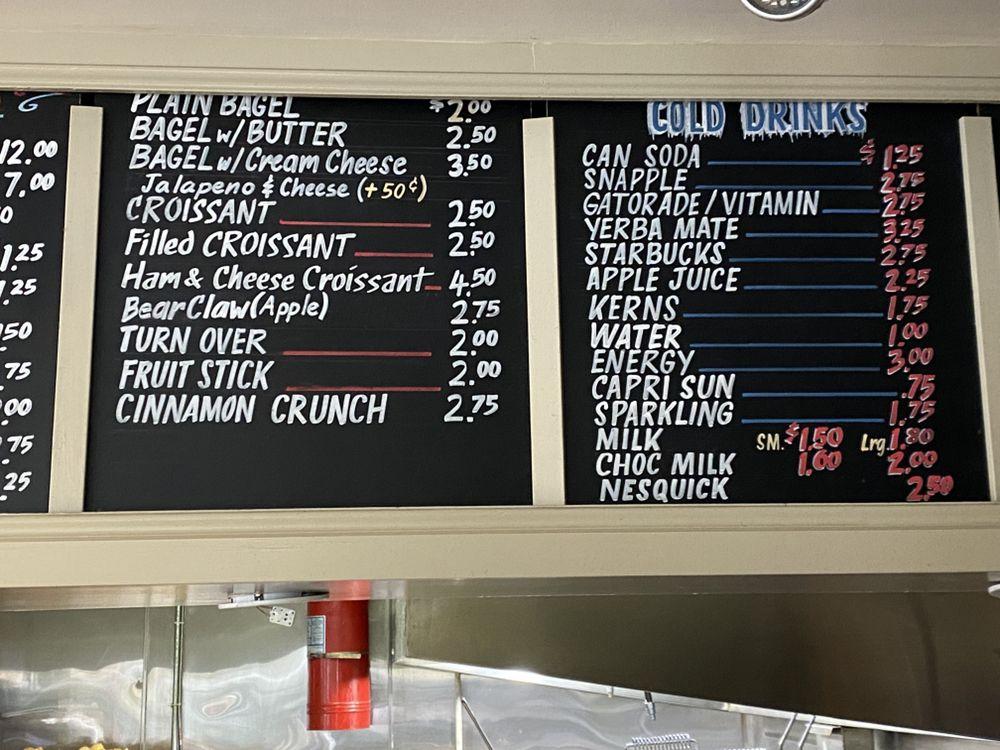 12.00
7.00
1.25
.25
50
.75
.00
.75
.25
PLAIN BAGEL $2.00
BAGEL w/BUTTER 2.50
BAGEL w/Cream Cheese 3.50
Jalapeno & Cheese (+50¢)
CROISSANT 2.50
Filled CROISSANT 2.50
Ham & Cheese Croissant 4.50
Bear Claw (Apple) 2.75
TURN OVER 2.00
FRUIT STICK 2.00
CINNAMON CRUNCH 2.75
COLD DRINKS
CAN SODA $1.25
SNAPPLE 2.75
GATORADE/VITAMIN 2.75
YERBA MATE 3.25
STARBUCKS 2.75
APPLE JUICE 2.25
KERNS 1.75
WATER 1.00
ENERGY 3.00
CAPRI SUN .75
SPARKLING 1.75
MILK SM. $1.50 Lrg. 1.80
CHOC MILK 1.60 2.00
NESQUICK 2.50